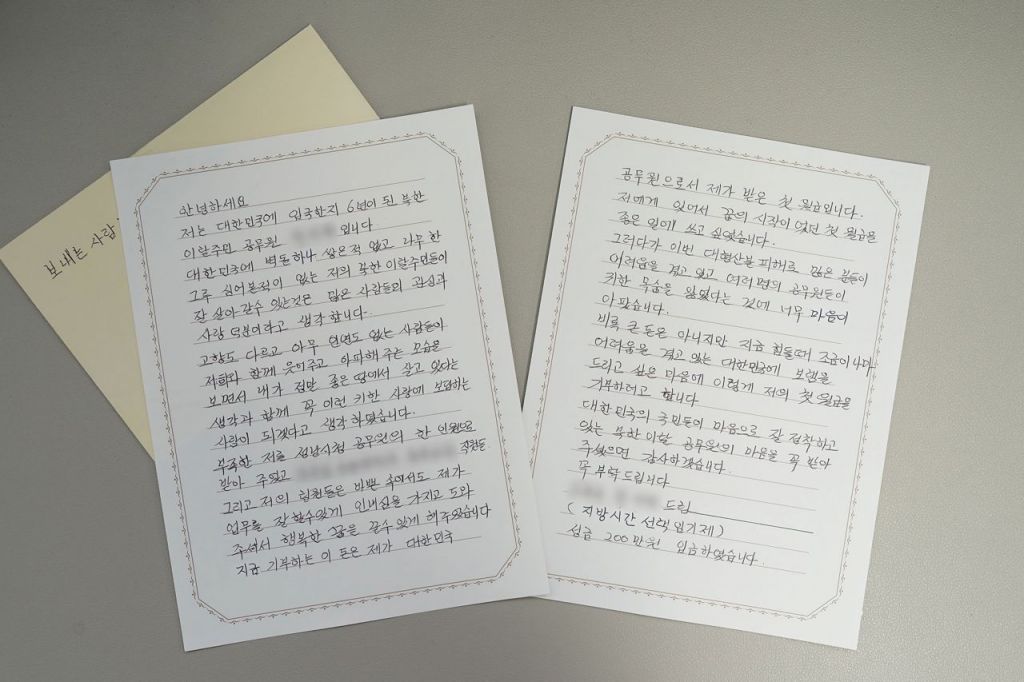 보내는 사람
안녕하세요
저는 대한민국에 입국한지 6년이 된 북한
이탈주민 공무원 입니다
대한민국에 벽돌하나 쌓은적 없고 나무 한
그루 심어본적이 없는 저의 북한 이탈주민들이
잘 살아 갈수 있는것은 많은 사람들의 관심과
사랑 덕분이라고 생각 합니다.
고향도 다르고 아무 연연도 없는 사람들이
저희와 함께 웃어주고 아파해 주는 모습을
보면서 내가 정말 좋은 땅에서 살고 있다는
생각과 함께 꼭 이런 귀한 사랑에 보답하는
사람이 되겠다고 생각 하였습니다.
부족한 저를 성남시청 공무원의 한 인원으로
받아 주었고 직원들
그리고 저의 팀원들은 바쁜 속에서도 제가
업무를 잘 할수있게 인내심을 가지고 도와
주셔서 행복한 꿈을 꿀수 있게 해주었습니다
지금 기부하는 이 돈은 제가 대한민국
공무원으로서 제가 받은 첫 월급입니다.
저에게 있어서 꿈의 시작이 였던 첫 월급을
좋은 일에 쓰고 싶었습니다.
그러다가 이번 대형산불 피해로 많은 분들이
어려움을 겪고 있고 여러명의 공무원들이
귀한 목숨을 잃었다는 것에 너무 마음이
아팠습니다.
비록 큰 돈은 아니지만 지금 힘들때 조금이나마
어려움을 겪고 있는 대한민국에 보탬을
드리고 싶은 마음에 이렇게 저의 첫 월급을
기부하려고 합니다
대한 민국의 국민들이 마음으로 잘 정착하고
있는 북한 이탈 공무원의 마음을 꼭 받아
주셨으면 감사하겠습니다.
꼭 부탁드립니다
드림
(지방시간 선택임기제)
성금 200만원 입금하였습니다.